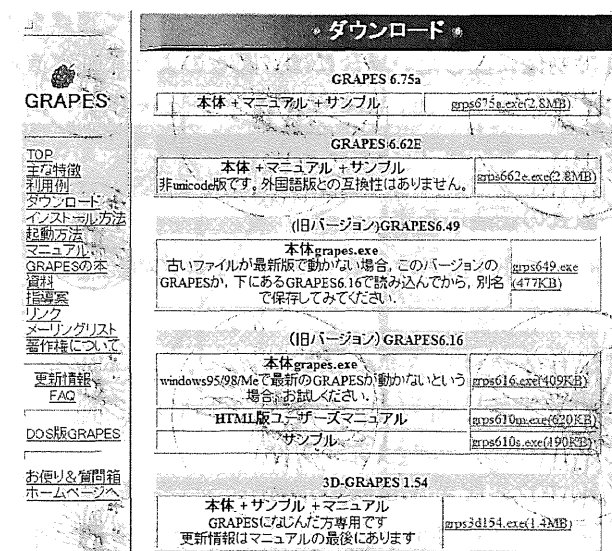 GRAPES
TOP
主な特徴
利用例
ダウンロード
インストール方法
起動方法
マニュアル
GRAPESの本
資料
指導案
リンク
メーリングリスト
著作権について
更新情報
FAQ
DOS版GRAPES
お便り&質問箱
ホームページへ
ダウンロード
GRAPES 6.75a
本体 + マニュアル + サンプル
grps675a.exe(2.8MB)
GRAPES 6.62E
本体 + マニュアル + サンプル
非unicode版です。外国語版との互換性はありません。
grps662e.exe(2.8MB)
(旧バージョン)GRAPES6.49
本体grapes.exe
古いファイルが最新版で動かない場合, このバージョンの
GRAPESか, 下にあるGRAPES6.16で読み込んでから, 別名
で保存してみてください.
grps649.exe
(477KB)
(旧バージョン) GRAPES6.16
本体grapes.exe
windows95/98/Meで最新のGRAPESが動かないという
場合, お試しください.
grps616.exe(409KB)
HTML版ユーザーズマニュアル
grps610m.exe(620KB)
サンプル
grps610s.exe(190KB)
3D-GRAPES 1.54
本体 + サンプル + マニュアル
GRAPESになじんだ方専用です
更新情報はマニュアルの最後にあります
grps3d154.exe(1.4MB)